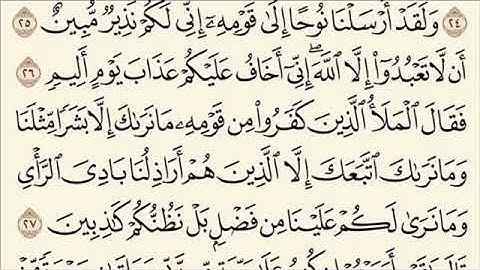 ٢٤ وَلَقَدْ أَرْسَلْنَا نُوحًا إِلَىٰ قَوْمِهِۦٓ إِنِّى لَكُمْ نَذِيرٌ مُّبِينٌ ٢٥
أَن لَّا تَعْبُدُوٓا۟ إِلَّا ٱللَّهَ ۖ إِنِّىٓ أَخَافُ عَلَيْكُمْ عَذَابَ يَوْمٍ أَلِيمٍ ٢٦
فَقَالَ ٱلْمَلَأُ ٱلَّذِينَ كَفَرُوا۟ مِن قَوْمِهِۦ مَا نَرَىٰكَ إِلَّا بَشَرًا مِّثْلَنَا
وَمَا نَرَىٰكَ ٱتَّبَعَكَ إِلَّا ٱلَّذِينَ هُمْ أَرَاذِلُنَا بَادِىَ ٱلرَّأْىِ
وَمَا نَرَىٰ لَكُمْ عَلَيْنَا مِن فَضْلٍۭ بَلْ نَظُنُّكُمْ كَٰذِبِينَ ٢٧